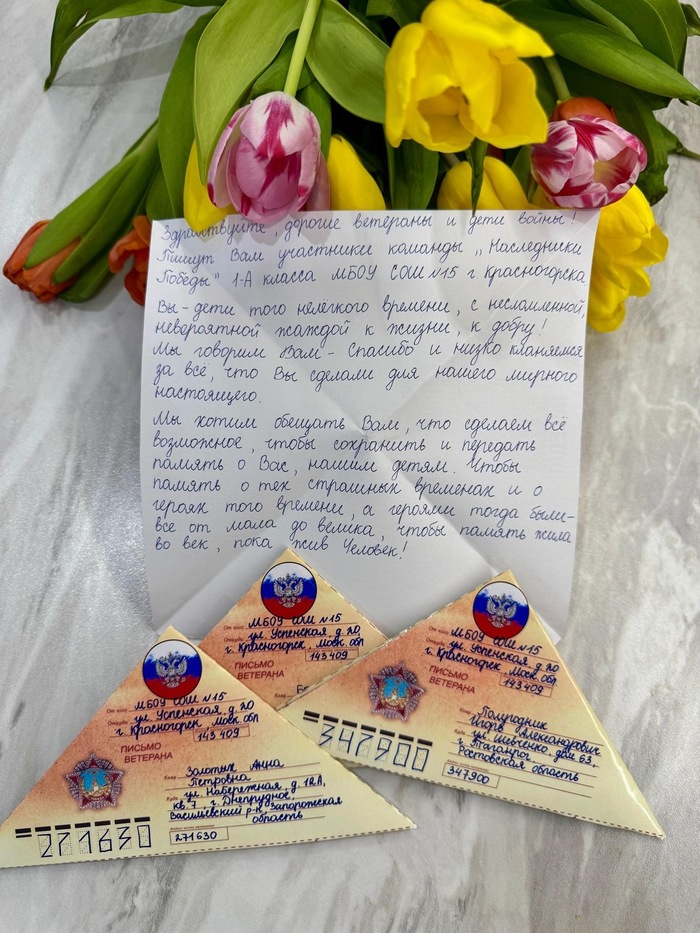 Здравствуйте, дорогие ветераны и дети войны!
Пишут Вам участники команды „Наследники
Победы" 1-А класса МБОУ СОШ №15 г. Красногорска
Вы - дети того нелёгкого времени, с несломленной,
невероятной жаждой к жизни, к добру!
Мы говорим Вам - Спасибо и низко кланяемся
за всё, что Вы сделали для нашего мирного
настоящего.
Мы хотим обещать Вам, что сделаем всё
возможное, чтобы сохранить и передать
память о Вас, нашим детям. Чтобы
память о тех страшных временах и о
героях того времени, а героями тогда были-
все от мала до велика, чтобы память жила
во век, пока жив Человек!
От кого МБОУ СОШ №15
Откуда ул. Успенская, д. 20,
г. Красногорск, Моск. обл
143409
ПИСЬМО
ВЕТЕРАНА
Кому
От кого МБОУ СОШ №15
Откуда ул. Успенская, д. 20
г. Красногорск, Моск. обл
143409
ПИСЬМО
ВЕТЕРАНА
Кому Полугодник
Игорь Александрович
Куда ул. Шевченко, дом 63,
г. Таганрог
Ростовская область
347900
347900
От кого МБОУ СОШ №15
Откуда ул. Успенская, д. 20
г. Красногорск, Моск. обл
143 409
ПИСЬМО
ВЕТЕРАНА
Кому Золотых Анна
Петровна
Куда ул. Набережная, д. 12А,
кв 7, г. Днепрудное,
Васильевский р-н, Запорожская
область
271630
271630